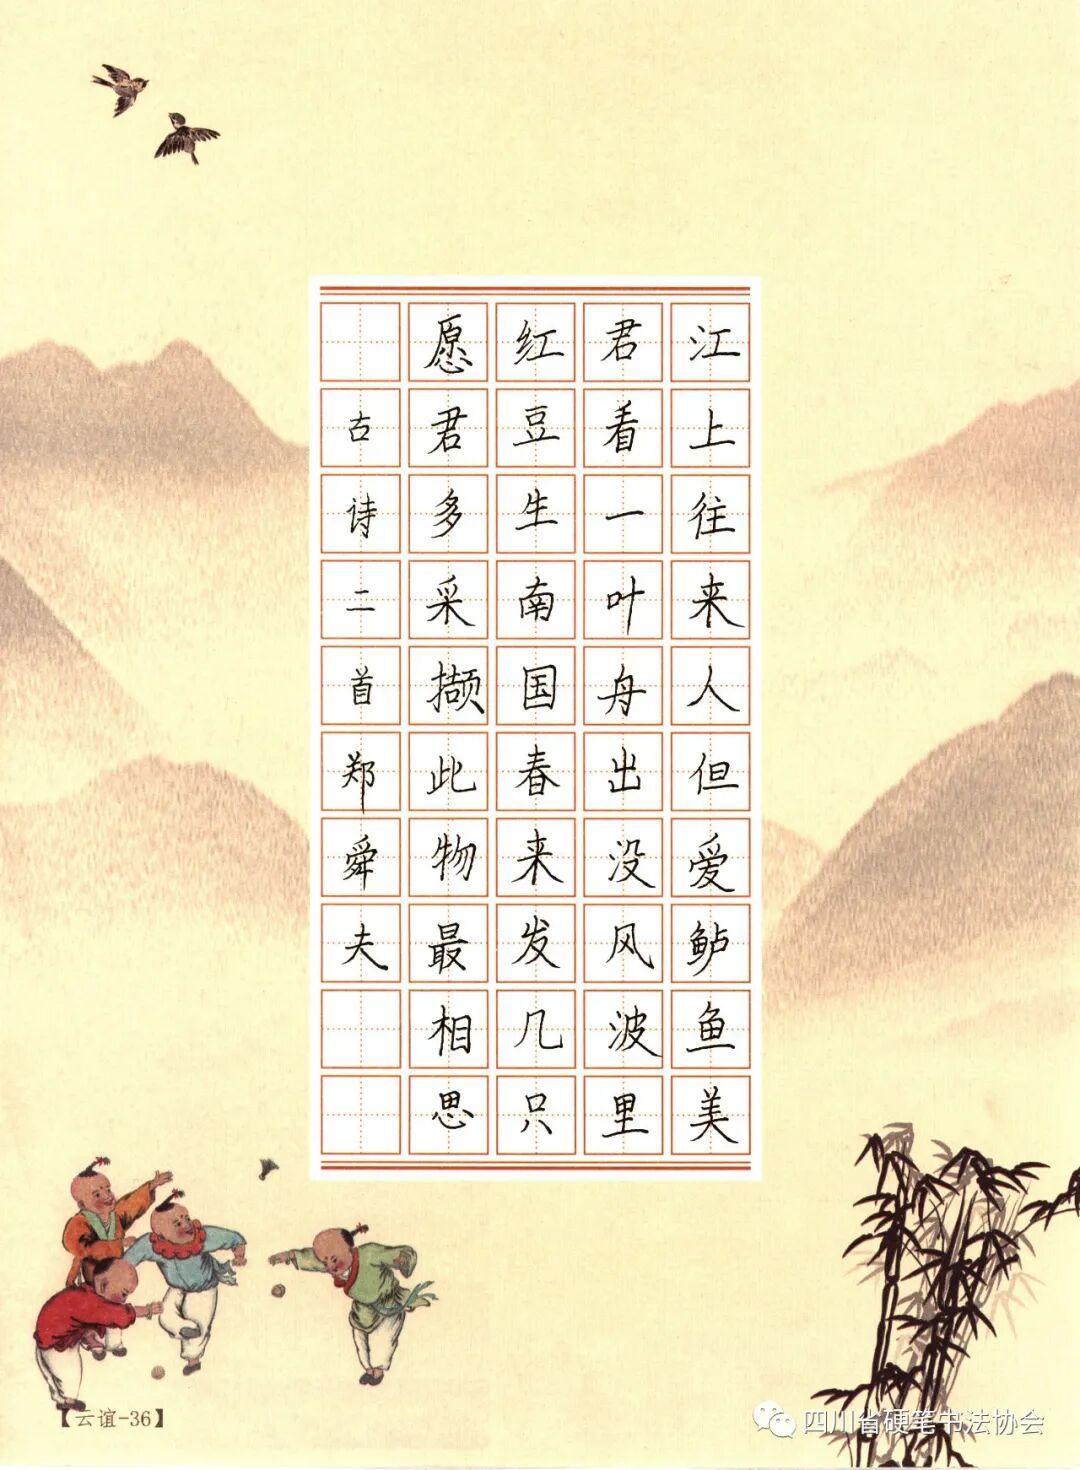 江上往来人但爱鲈鱼美
君看一叶舟出没风波里
红豆生南国春来发几只
愿君多采撷此物最相思
古诗二首郑舜夫
【云谊-36】
四川省硬笔书法协会